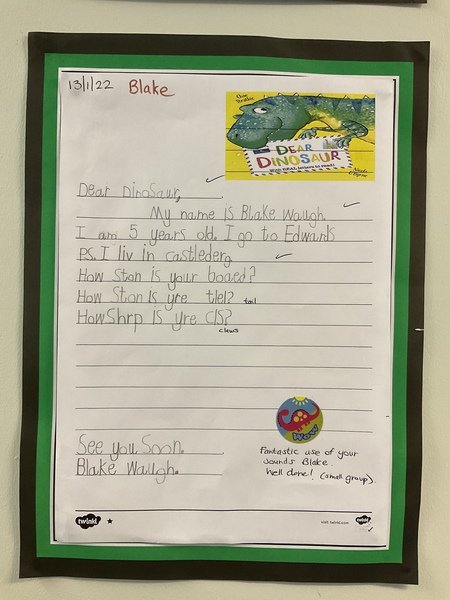 13/1/22 Blake
Chae Strathie
DEAR
DINOSAUR
WITH REAL letters to read!
Nicola O'Byrne
Dear Dinosaur,
My name is Blake Waugh.
I am 5 years old. I go to Edwards
PS. I liv in castlederg
How Ston is your boaed?
How Ston is yre tlel? tail
How Shrp is yre cls?
claws
See you Soon.
Blake Waugh.
WOW
Fantastic use of your
sounds Blake.
Well done! (small group)
twinkl
visit twinkl.com
twinkl